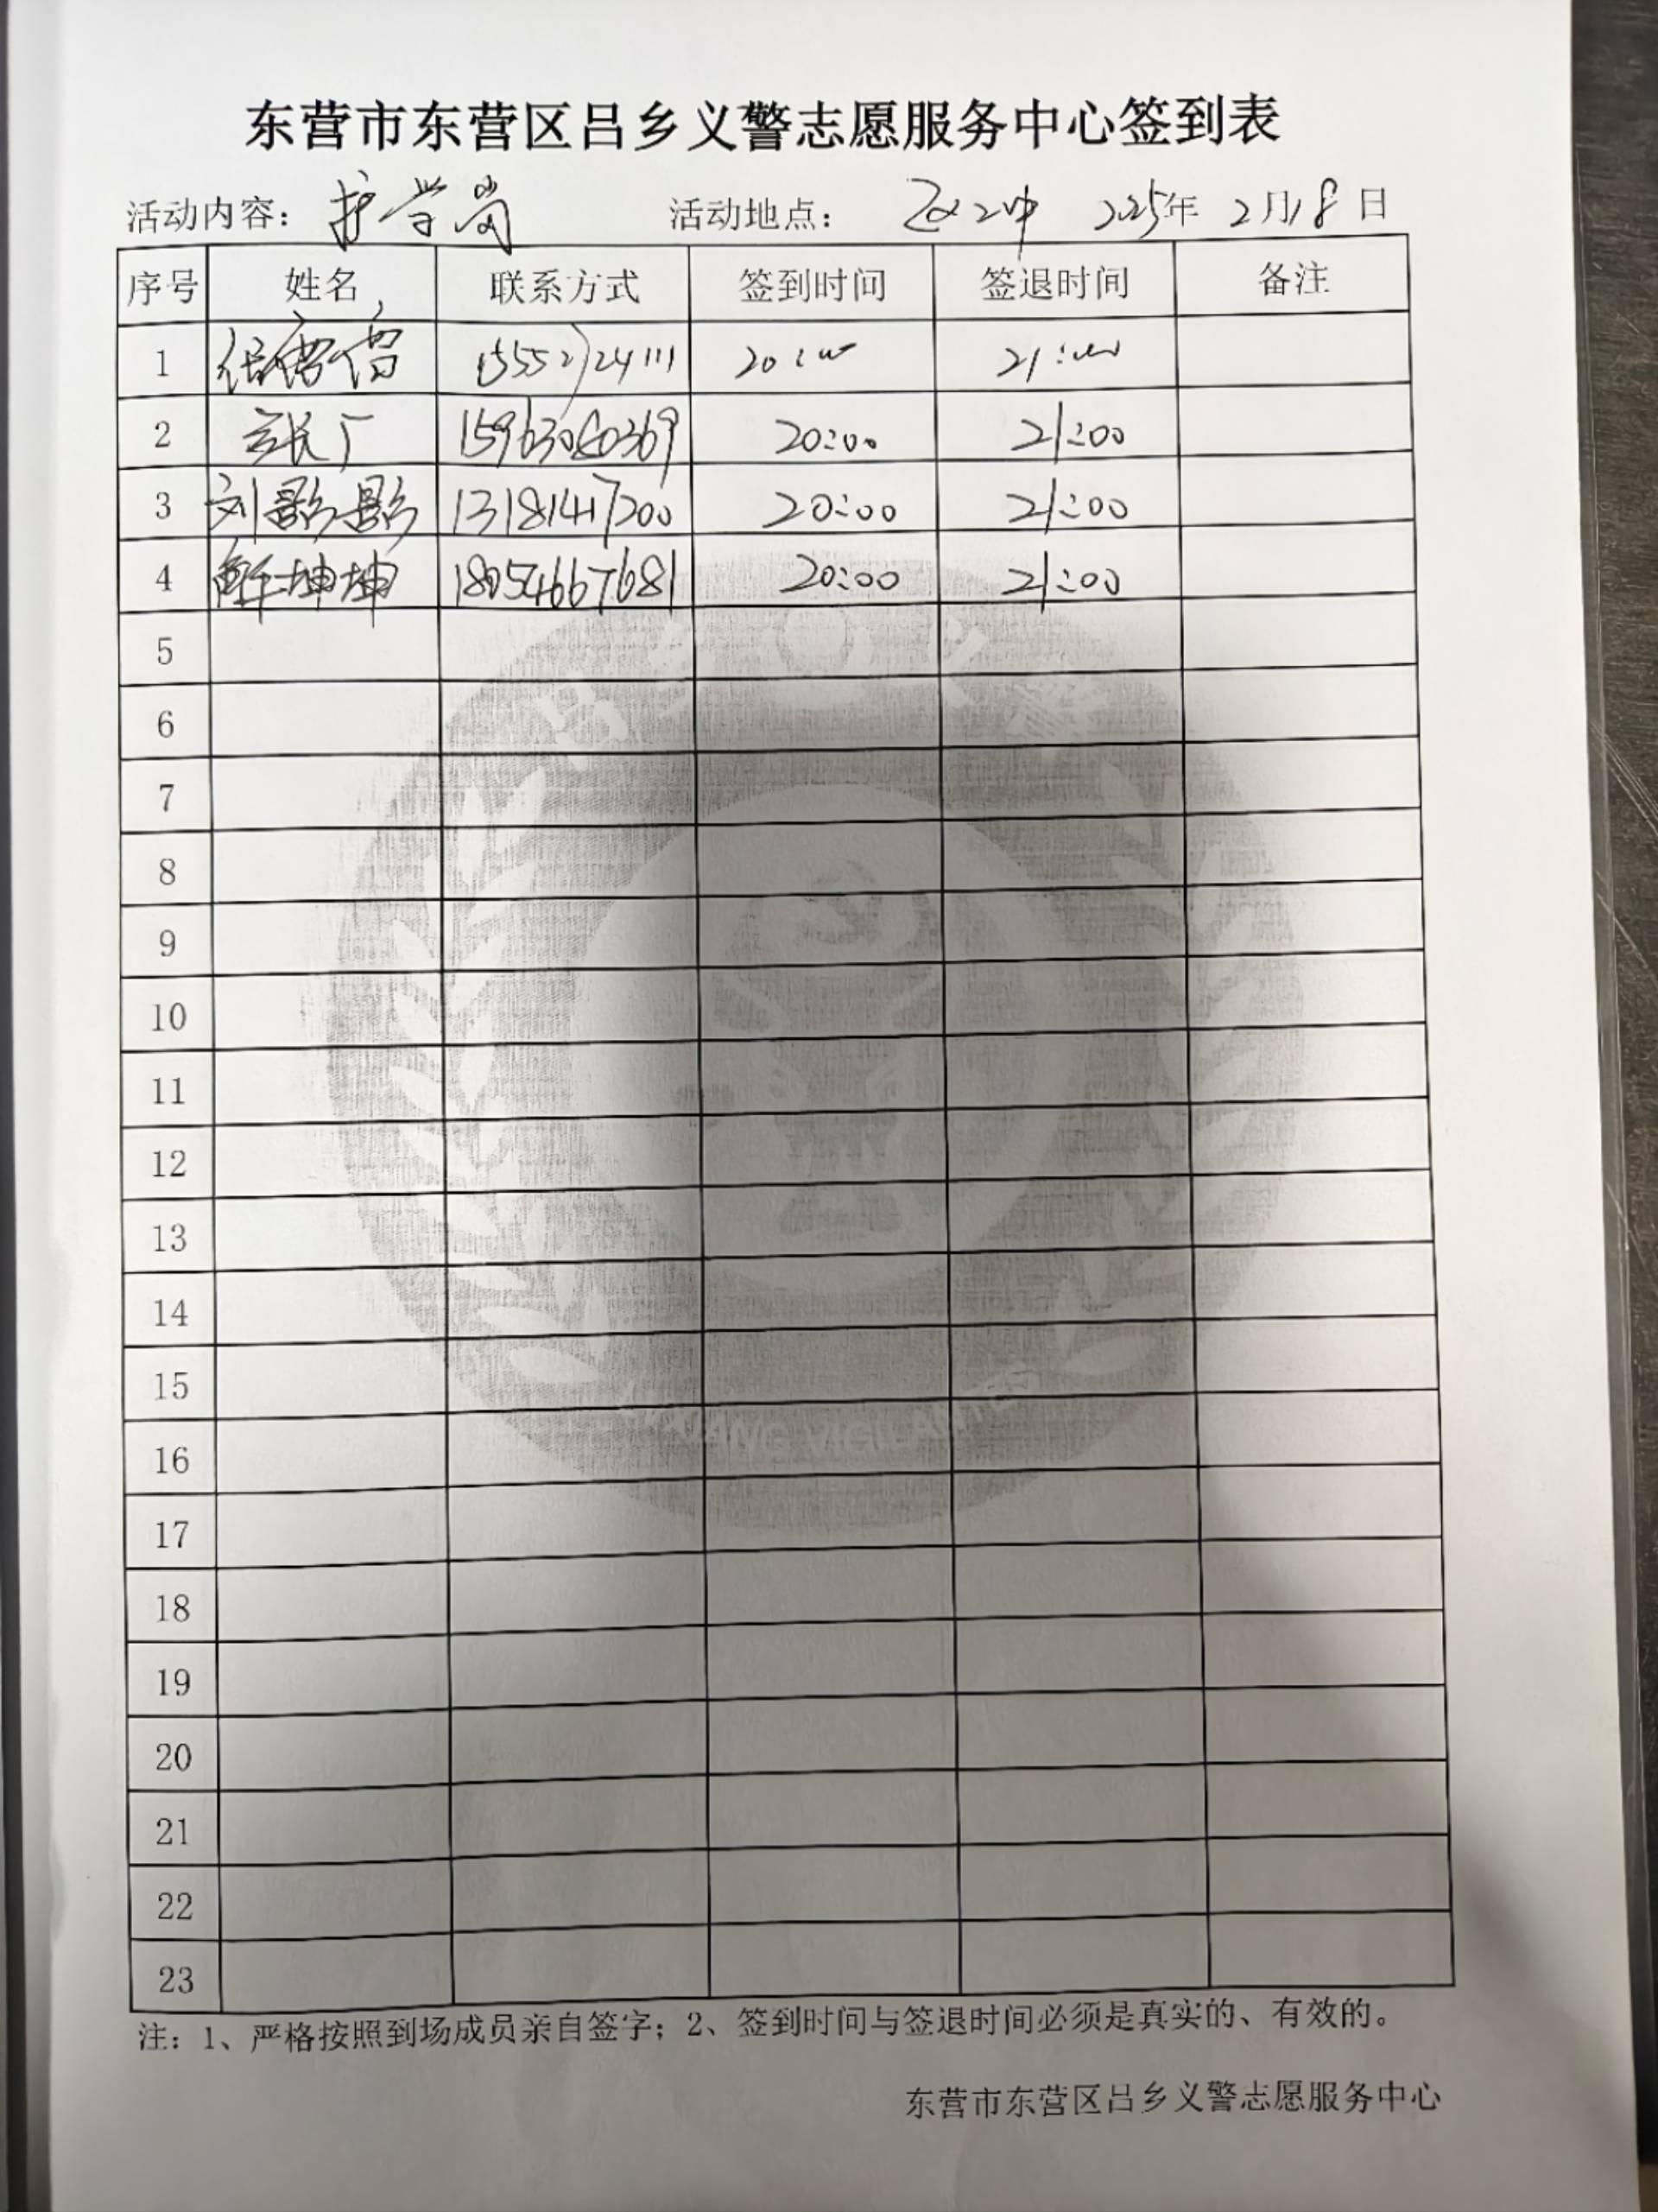 东营市东营区吕乡义警志愿服务中心签到表
活动内容：护学岗 活动地点： 2025年 2月18日
序号 姓名 联系方式 签到时间 签退时间 备注
1 15552724111 20:00 21:00
2 20:00 21:00
3 刘影影 13181417200 20:00 21:00
4 鲜坤坤 18054667681 20:00 21:00
5
6
7
8
9
10
11
12
13
14
15
16
17
18
19
20
21
22
23
注：1、严格按照到场成员亲自签字；2、签到时间与签退时间必须是真实的、有效的。
东营市东营区吕乡义警志愿服务中心